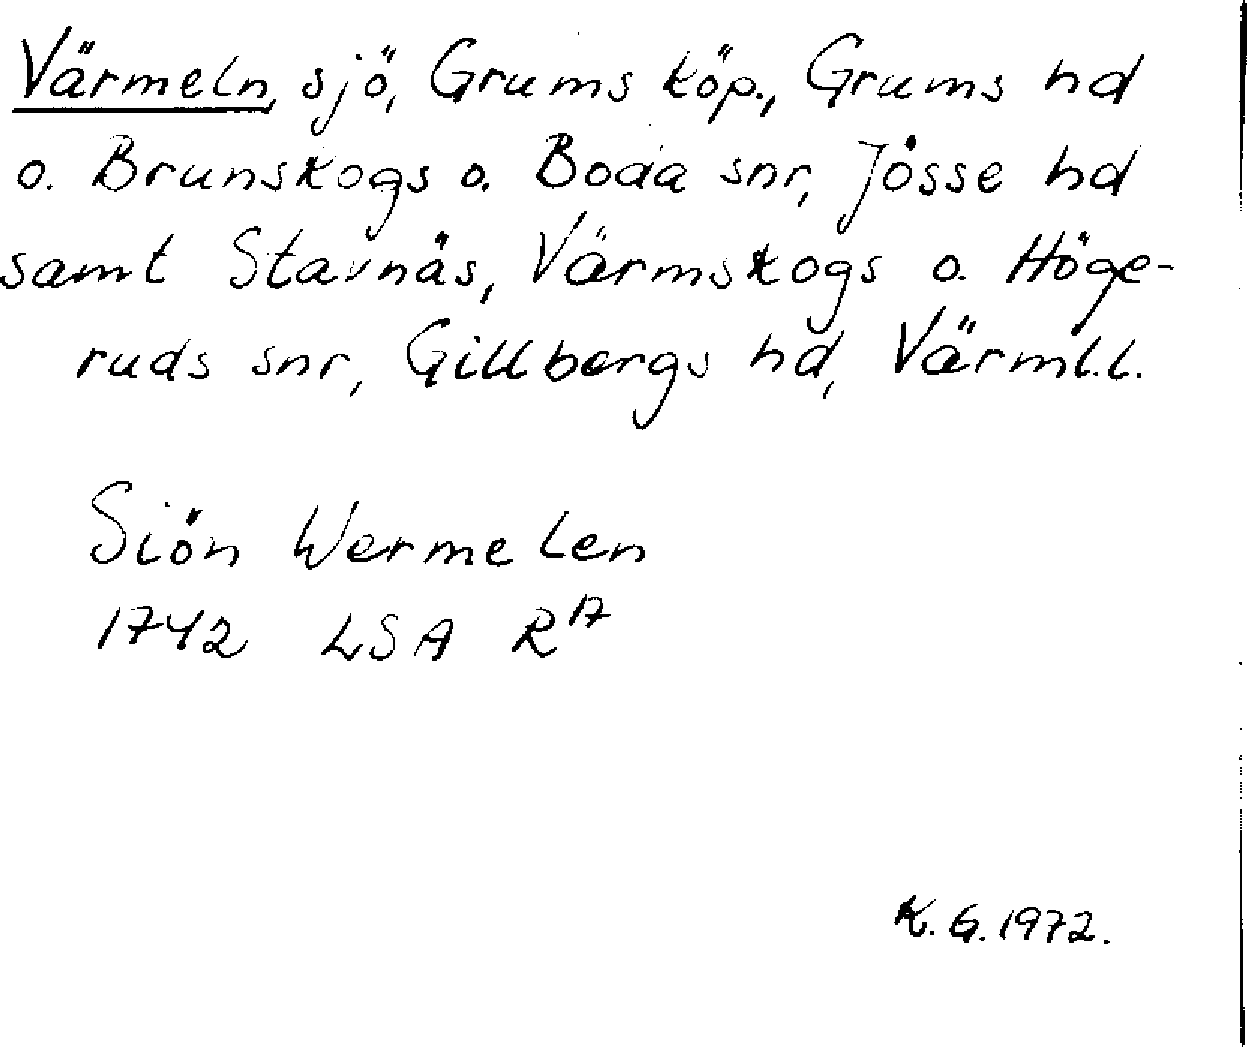 Värmeln, sjö, Grums köp., Grums hd
o. Brunskogs o. Boda snr, Jösse hd
samt Stavnäs, Värmskogs o. Höge-
ruds snr, Gillbergs hd, Värml.l.
Siön Wermelen
1742 LSA R17
K.G. 1972.